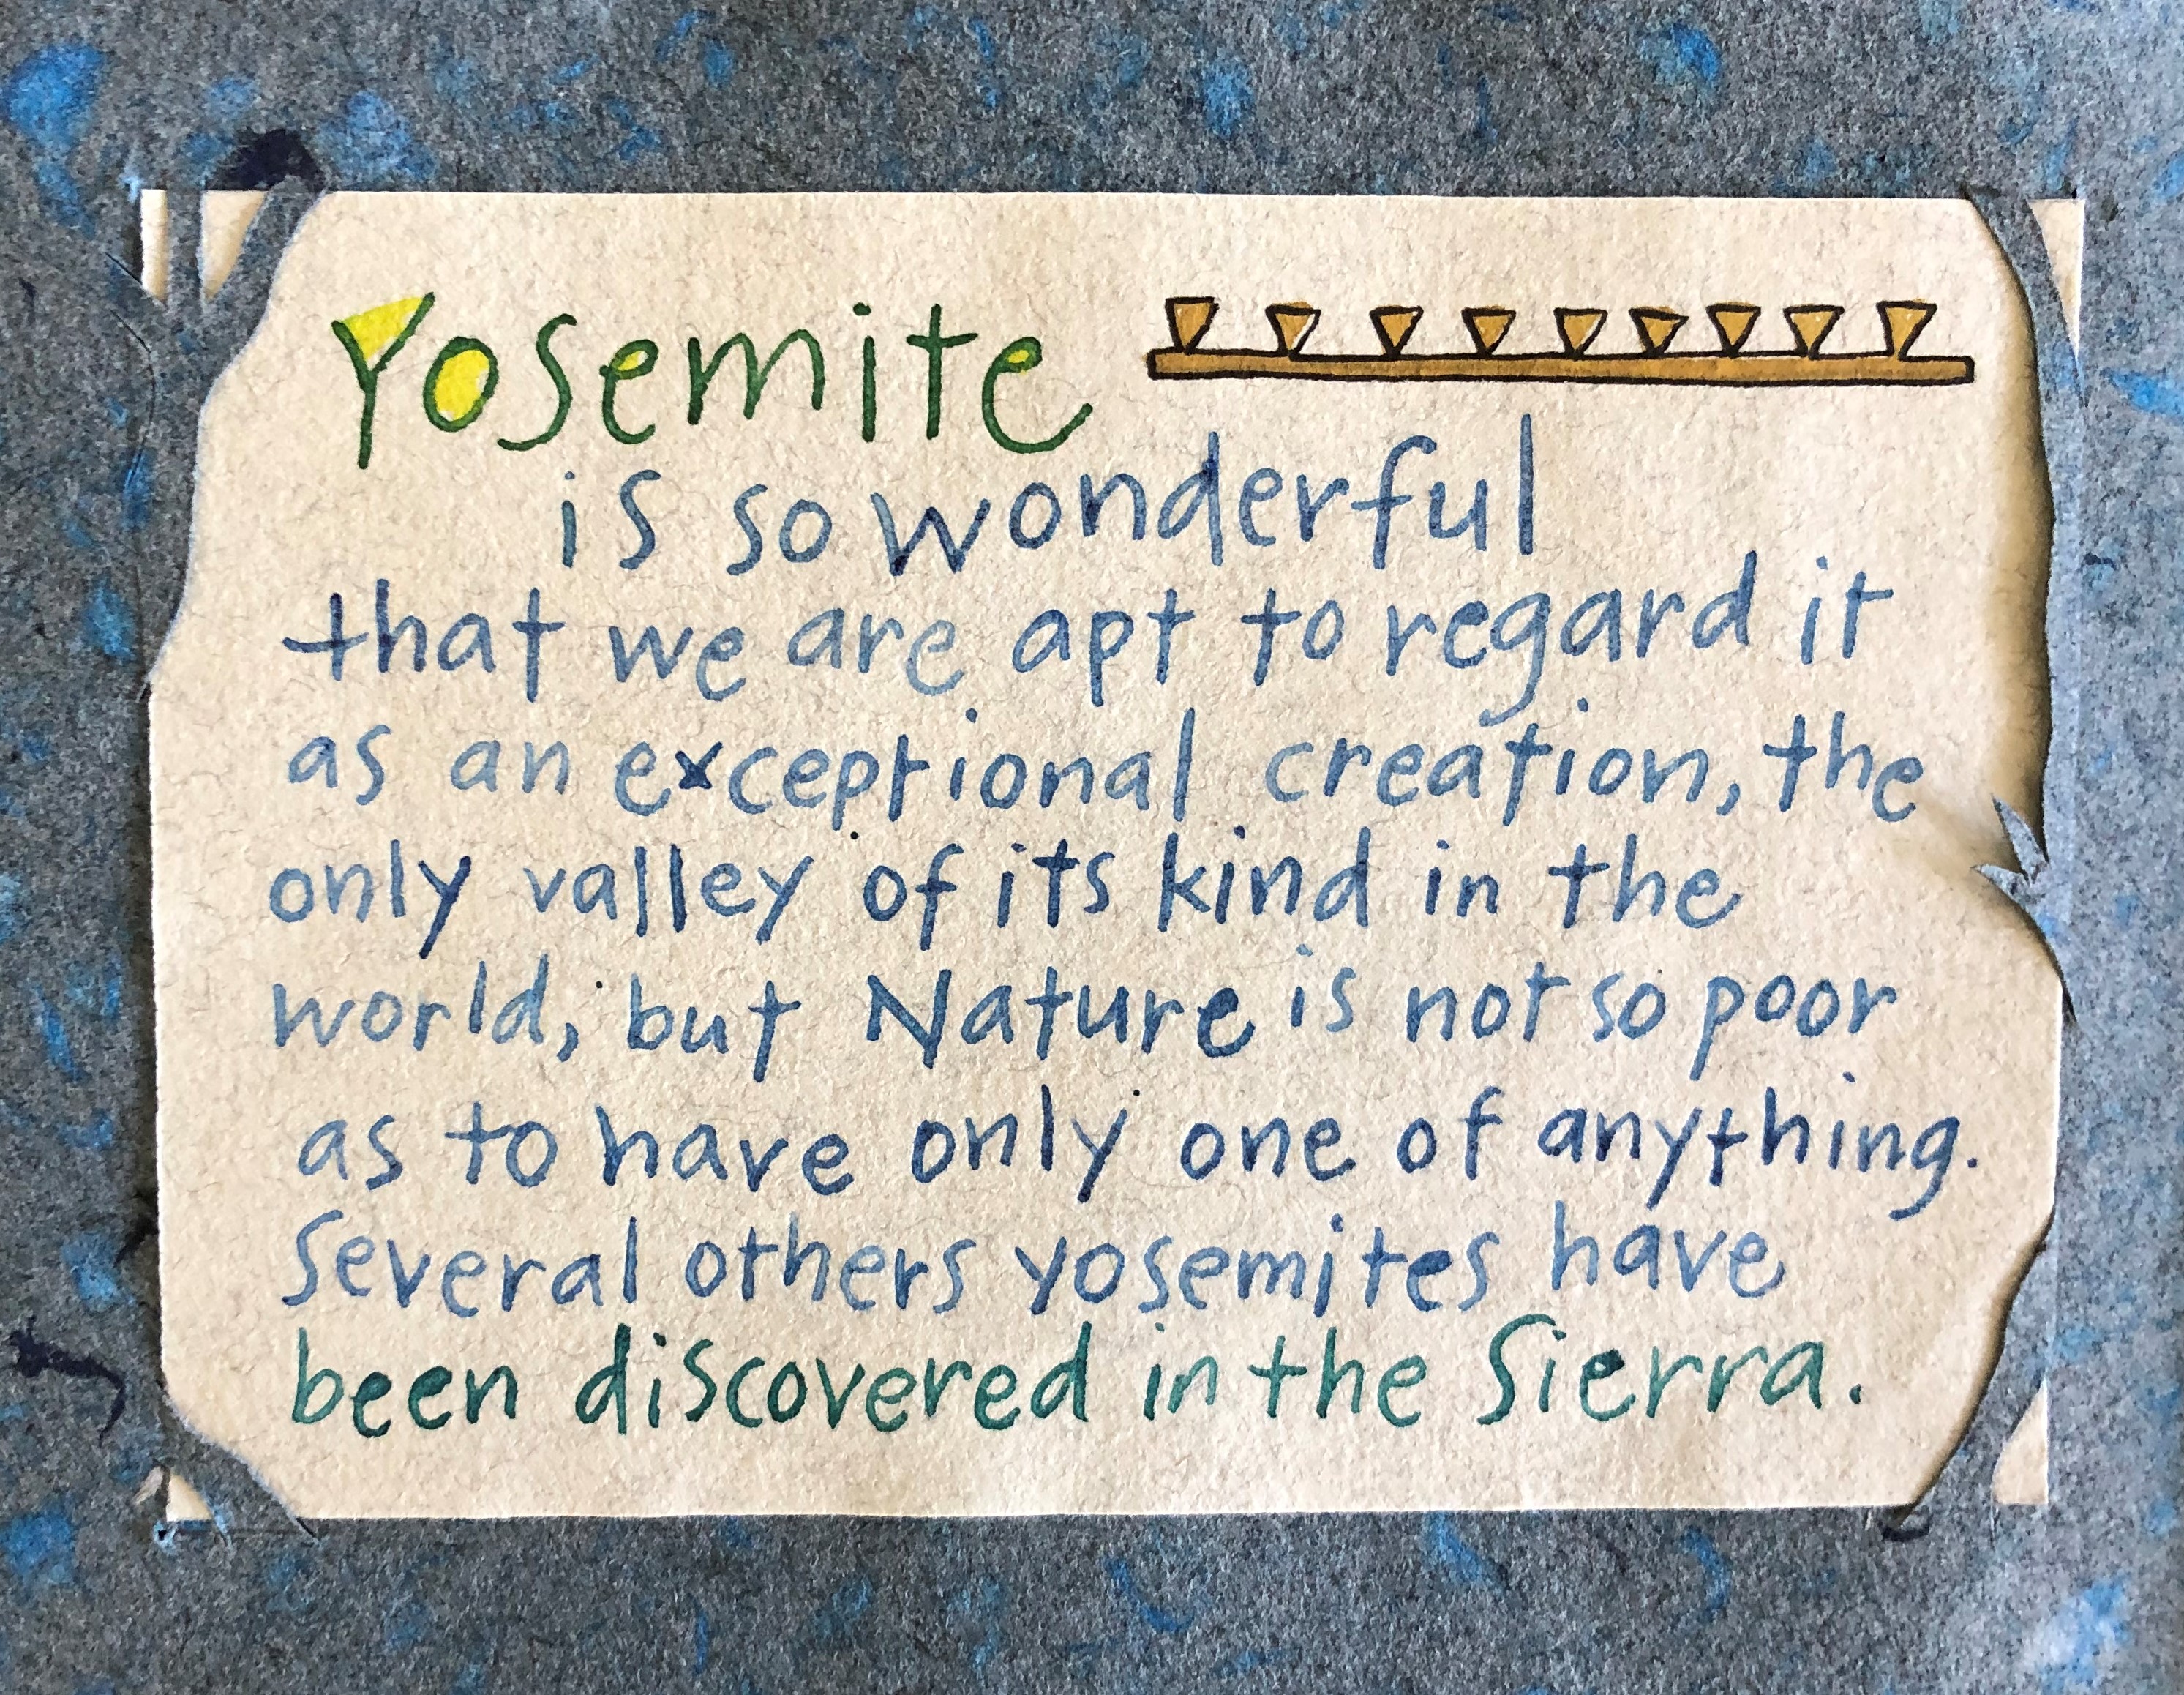 Yosemite
is so wonderful
that we are apt to regard it
as an exceptional creation, the
only valley of its kind in the
world; but Nature is not so poor
as to have only one of anything.
Several others yosemites have
been discovered in the Sierra.